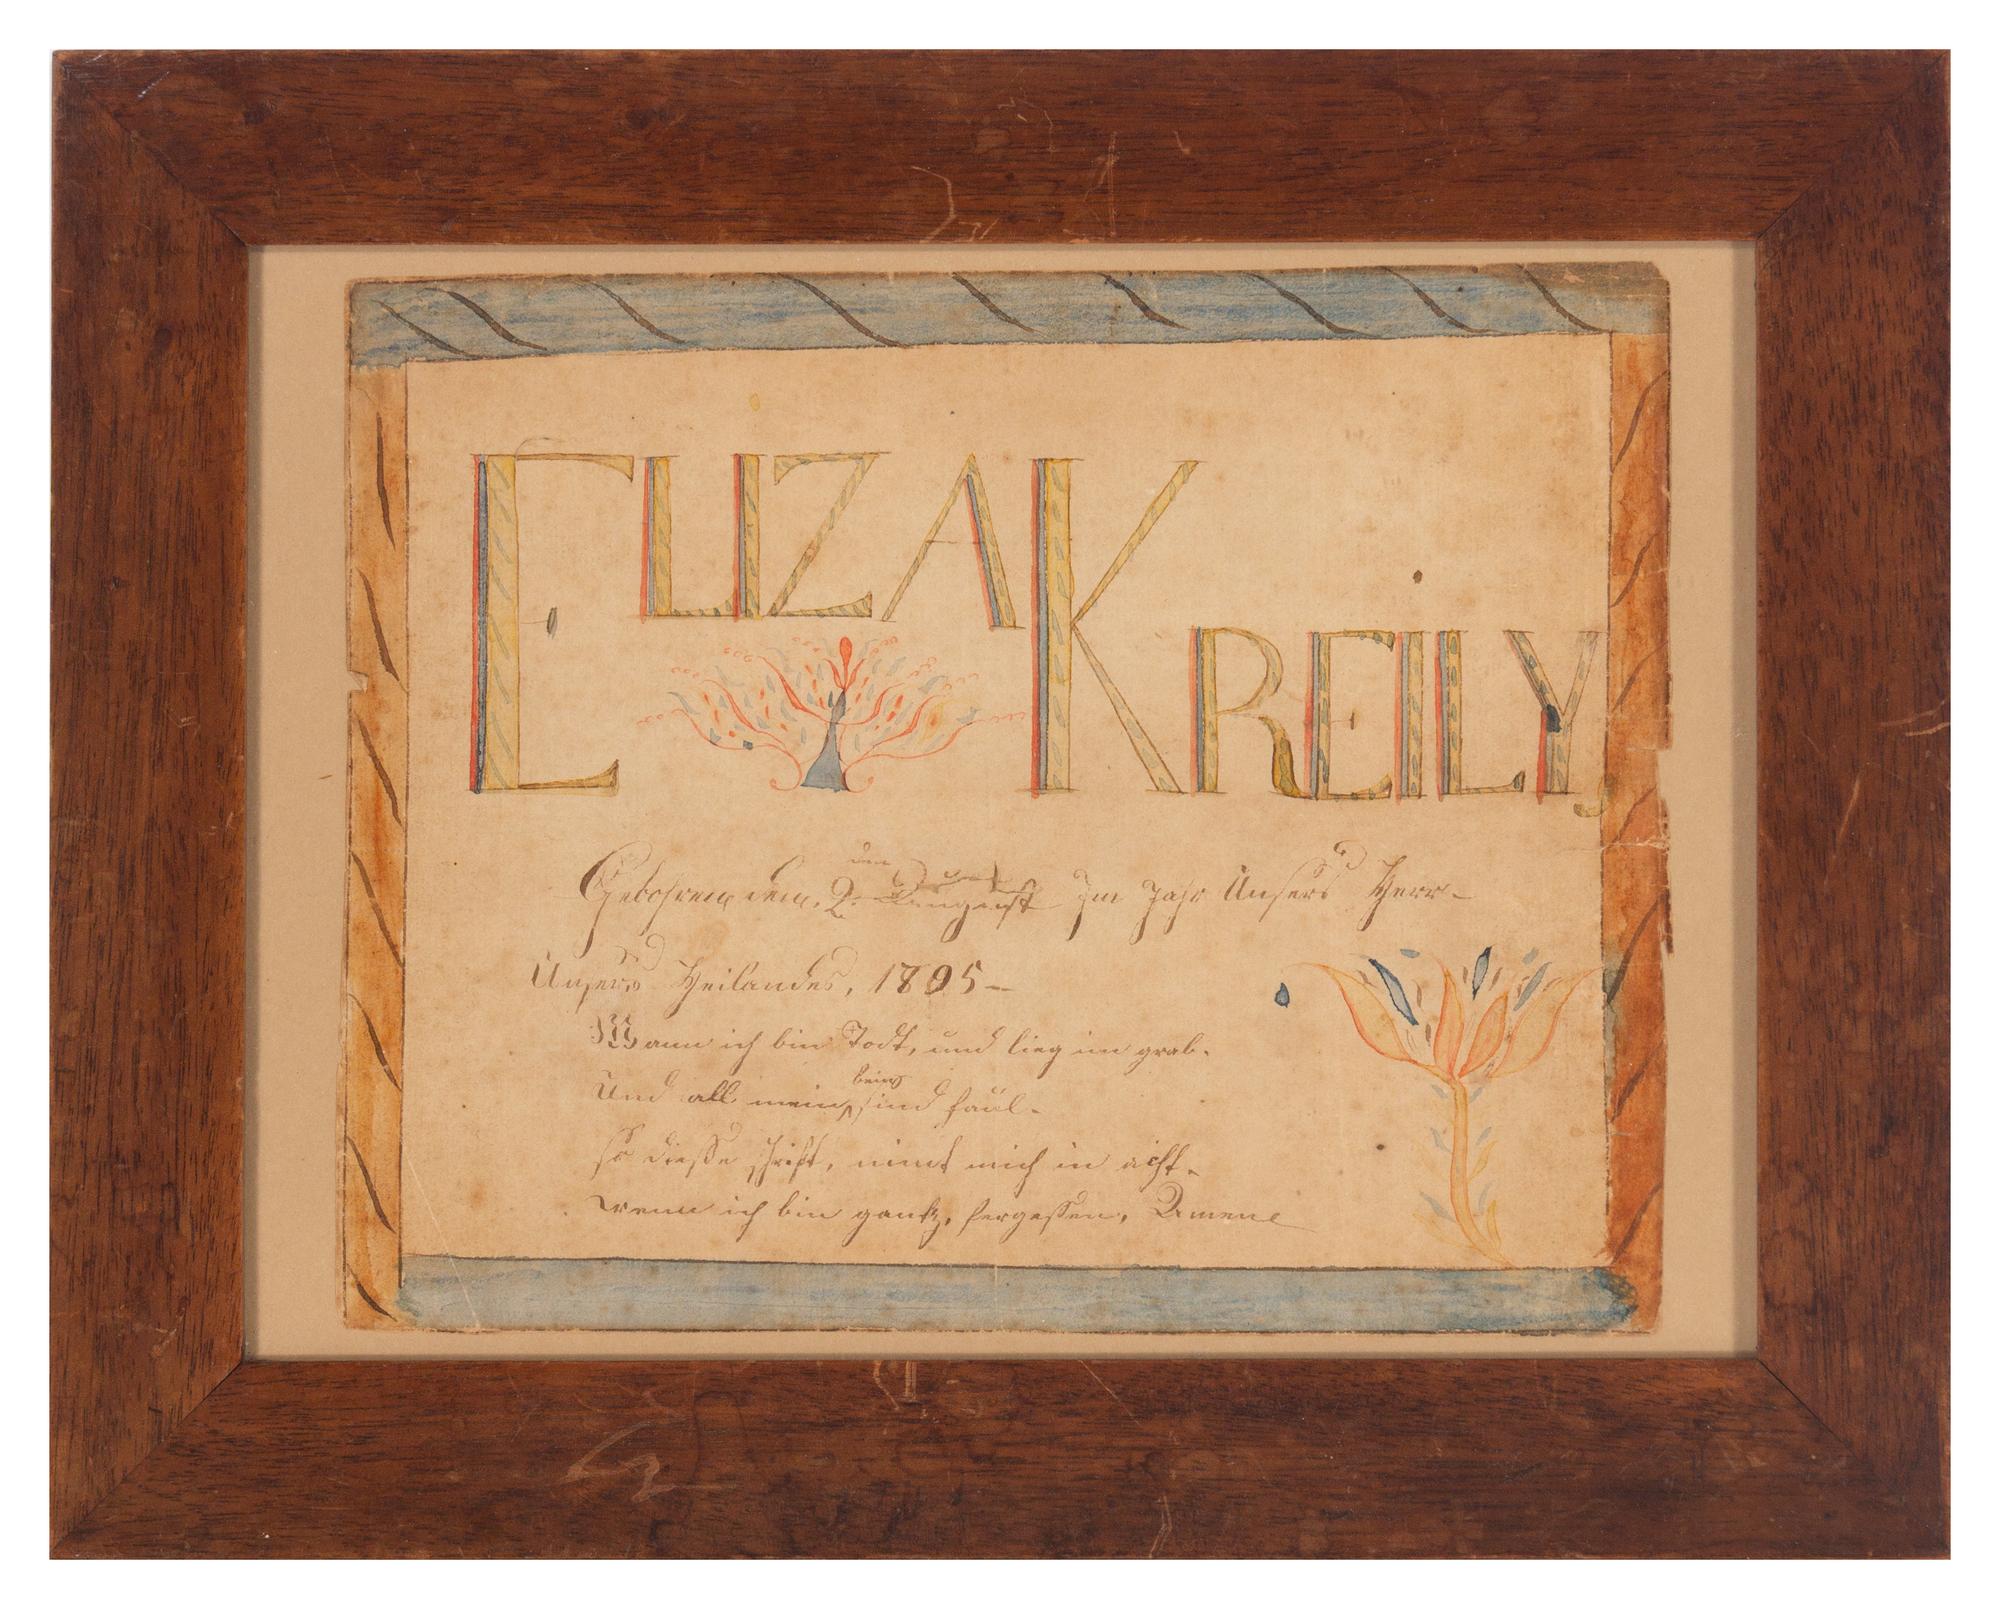 ELIZA KREILY
Gebohren den. 2: den Auengust Im Jahr Unsers Herr-
Unsers Heilandes, 1805-
Wann ich bin Todt, und lieg im grab.
Und all mein beins sind faül-
so dieße schrift, nimt mich in acht-
wenn ich bin gantz, fergeßen, Amene